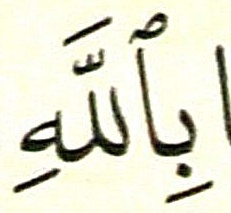 ا بِٱللَّهِ